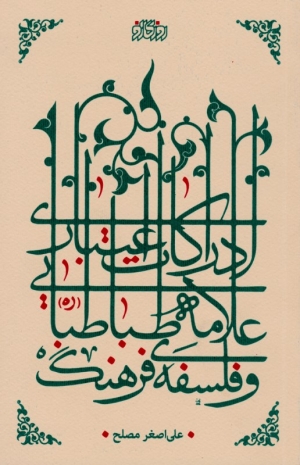 روزگار نو
ادراکات اعتباری
علامه طباطبایی (ره)
و فلسفه‌ی فرهنگ
علی‌اصغر مصلح